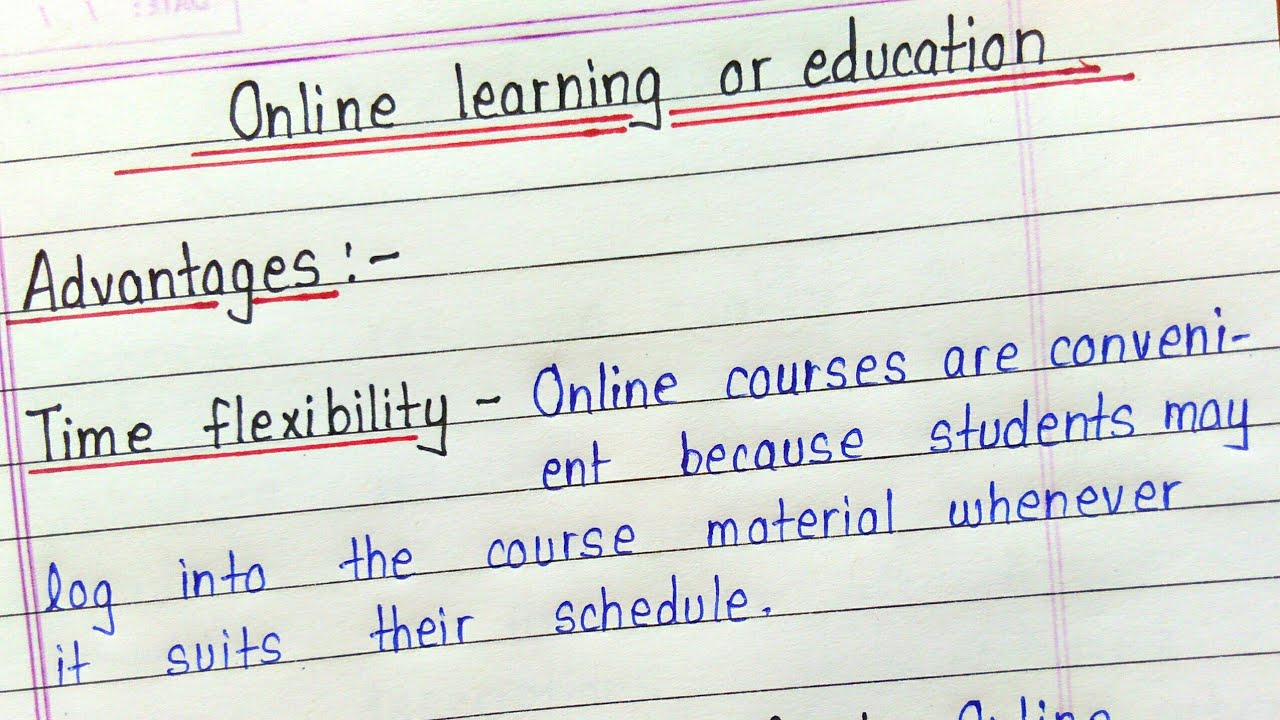 DATE:
Online learning or education
Advantages :-
Time flexibility - Online courses are conveni-
ent because students may
log into the course material whenever
it suits their schedule.
Online